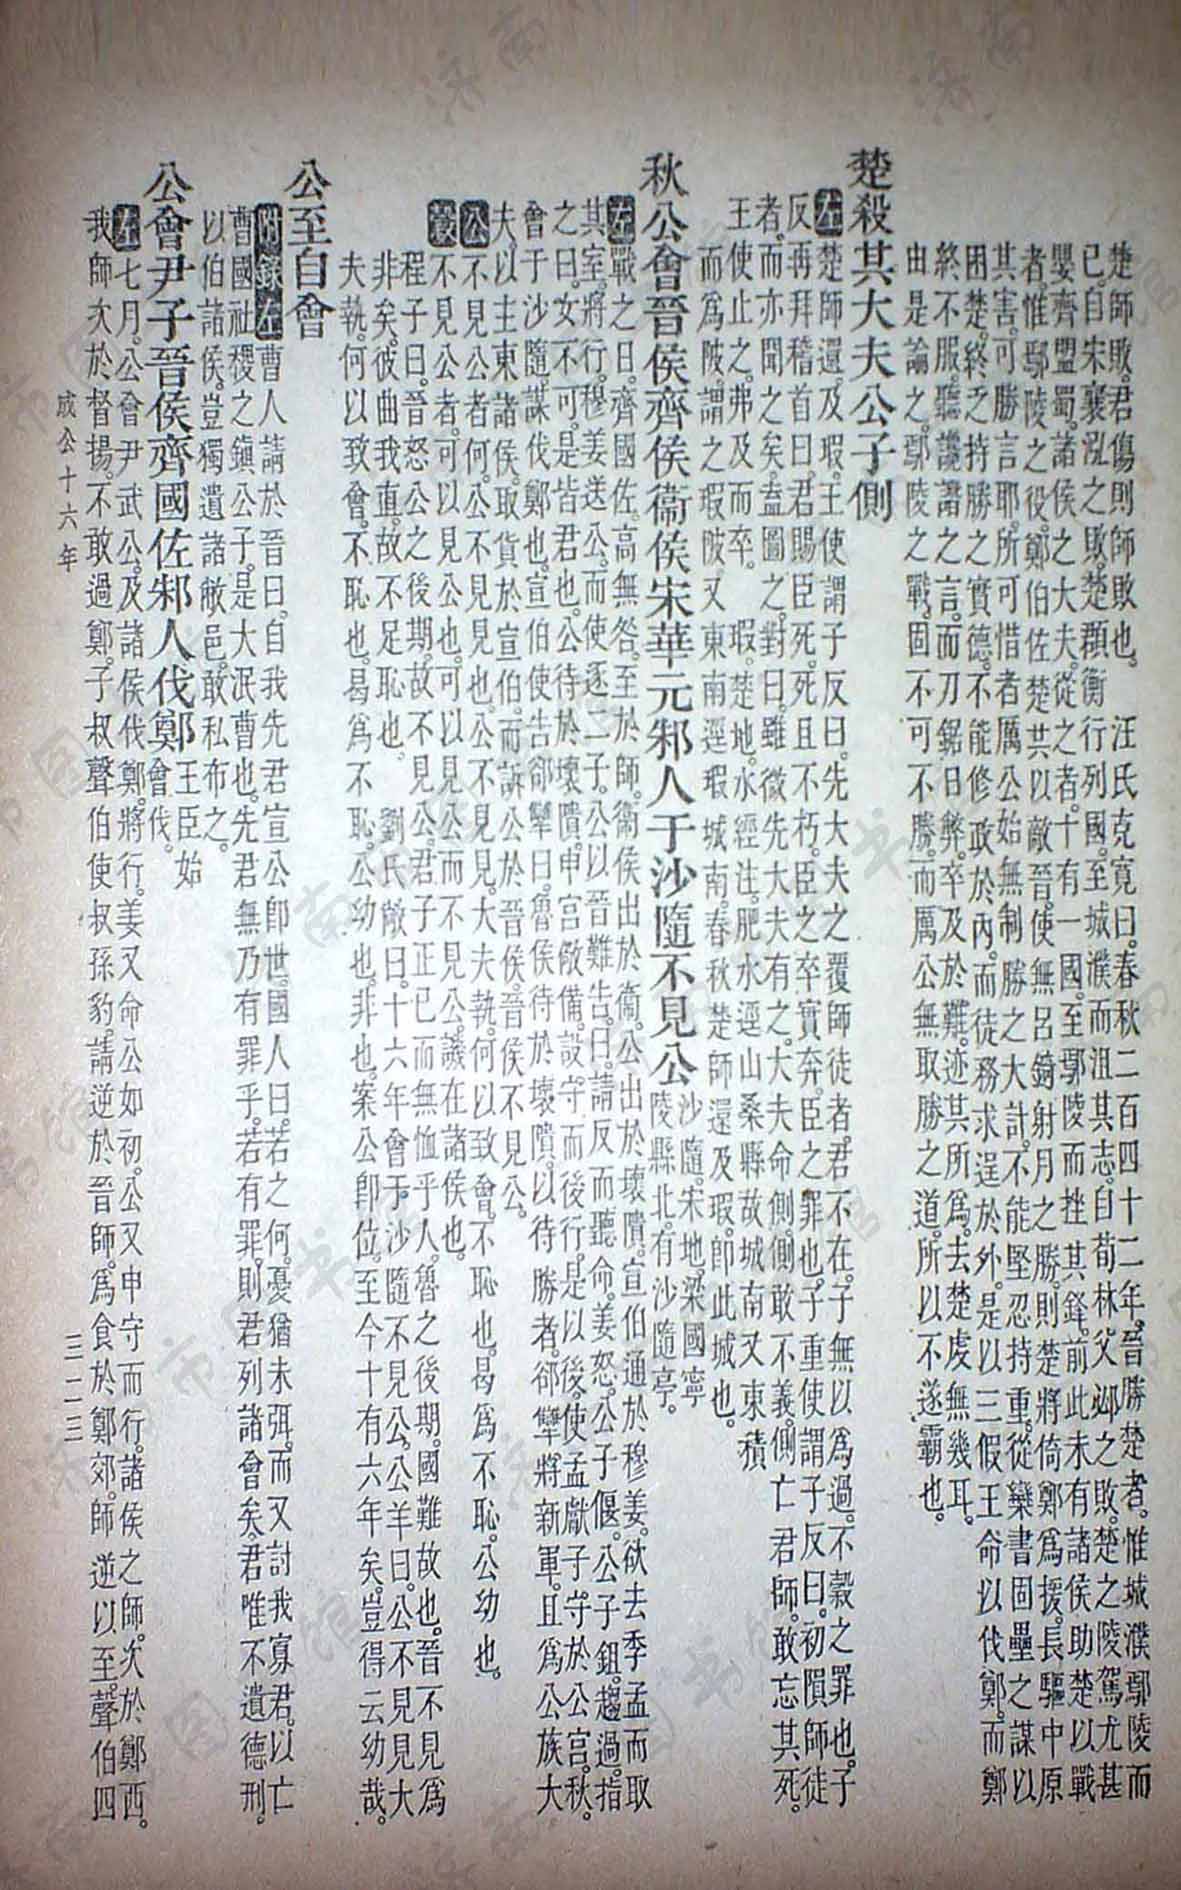 楚師敗。君傷則師敗也。　汪氏克寬曰。春秋二百四十二年。晉勝楚者。惟城濮鄢陵而
已。自宋襄泓之敗。楚頵衡行列國。至城濮而沮其志。自荀林父邲之敗。楚之陵駕尤甚
嬰齊盟蜀。諸侯之大夫。從之者。十有一國。至鄢陵而挫其鋒。前此未有諸侯助楚以戰
者。惟鄢陵之役。鄭伯佐楚共以敵晉。使無呂錡射月之勝。則楚將倚鄭爲援。長驅中原
其害。可勝言耶。所可惜者。厲公始無制勝之大計。不能堅忍持重。從欒書固壘之謀。以
困楚。終乏持勝之實德。不能修政於內。而徒務求逞於外。是以三假王命以伐鄭。而鄭
終不服。聽讒譖之言。而刀鋸日弊。卒及於難。迹其所爲。去楚虔無幾耳。
由是論之。鄢陵之戰。固不可不勝。而厲公無取勝之道。所以不遂霸也。
楚殺其大夫公子側
左楚師還。及瑕。王使謂子反曰。先大夫之覆師徒者。君不在。子無以爲過。不穀之罪也。子
反再拜稽首曰。君賜臣死。死且不朽。臣之卒實奔。臣之罪也。子重使謂子反曰。初隕師徒
者。而亦聞之矣。盍圖之。對曰。雖微先大夫有之。大夫命側。側敢不義。側亡君師。敢忘其死。
王使止之。弗及而卒。　瑕。楚地。水經注。肥水逕山桑縣故城南。又東積
而爲陂。謂之瑕陂。又東南逕瑕城南。春秋楚師還及瑕。卽此城也。
秋公會晉侯齊侯衞侯宋華元邾人于沙隨不見公沙隨。宋地。梁國寧
陵縣北。有沙隨亭。
左戰之日。齊國佐。高無咎。至於師。衞侯出於衞。公出於壞隤。宣伯通於穆姜。欲去季孟而取
其室。將行。穆姜送公。而使逐二子。公以晉難告。曰。請反而聽命。姜怒。公子偃。公子鉏。趨過。指
之曰。女不可。是皆君也。公待於壞隤。申宮儆備。設守而後行。是以後。使孟獻子守於公宮。秋。
會于沙隨。謀伐鄭也。宣伯使告郤犨曰。魯侯待於壞隤。以待勝者。郤犨將新軍。且爲公族大
夫。以主東諸侯。取貨於宣伯。而訴公於晉侯。晉侯不見公。
公不見公者何。公不見見也。公不見見。大夫執。何以致會。不恥也。曷爲不恥。公幼也。
穀不見公者。可以見公也。可以見公而不見公。譏在諸侯也。
程子曰。晉怒公之後期。故不見公。君子正己而無恤乎人。魯之後期。國難故也。晉不見爲
非矣。彼曲我直。故不足恥也。　劉氏敞曰。十六年會于沙隨。不見公。公羊曰。公不見見。大
夫執。何以致會。不恥也。曷爲不恥。公幼也。非也。案公卽位。至今十有六年矣。豈得云幼哉。
公至自會
附錄左曹人請於晉曰。自我先君宣公卽世。國人曰。若之何。憂猶未弭。而又討我寡君。以亡
曹國社稷之鎮公子。是大泯曹也。先君無乃有罪乎。若有罪。則君列諸會矣。君唯不遺德刑。
以伯諸侯。豈獨遺諸敝邑。敢私布之。
公會尹子晉侯齊國佐邾人伐鄭王臣始
會伐。
左七月。公會尹武公。及諸侯伐鄭。將行。姜又命公如初。公又申守而行。諸侯之師。次於鄭西。
我師次於督揚。不敢過鄭。子叔聲伯使叔孫豹。請逆於晉師。爲食於鄭郊。師逆以至。聲伯四
成公十六年
三一三